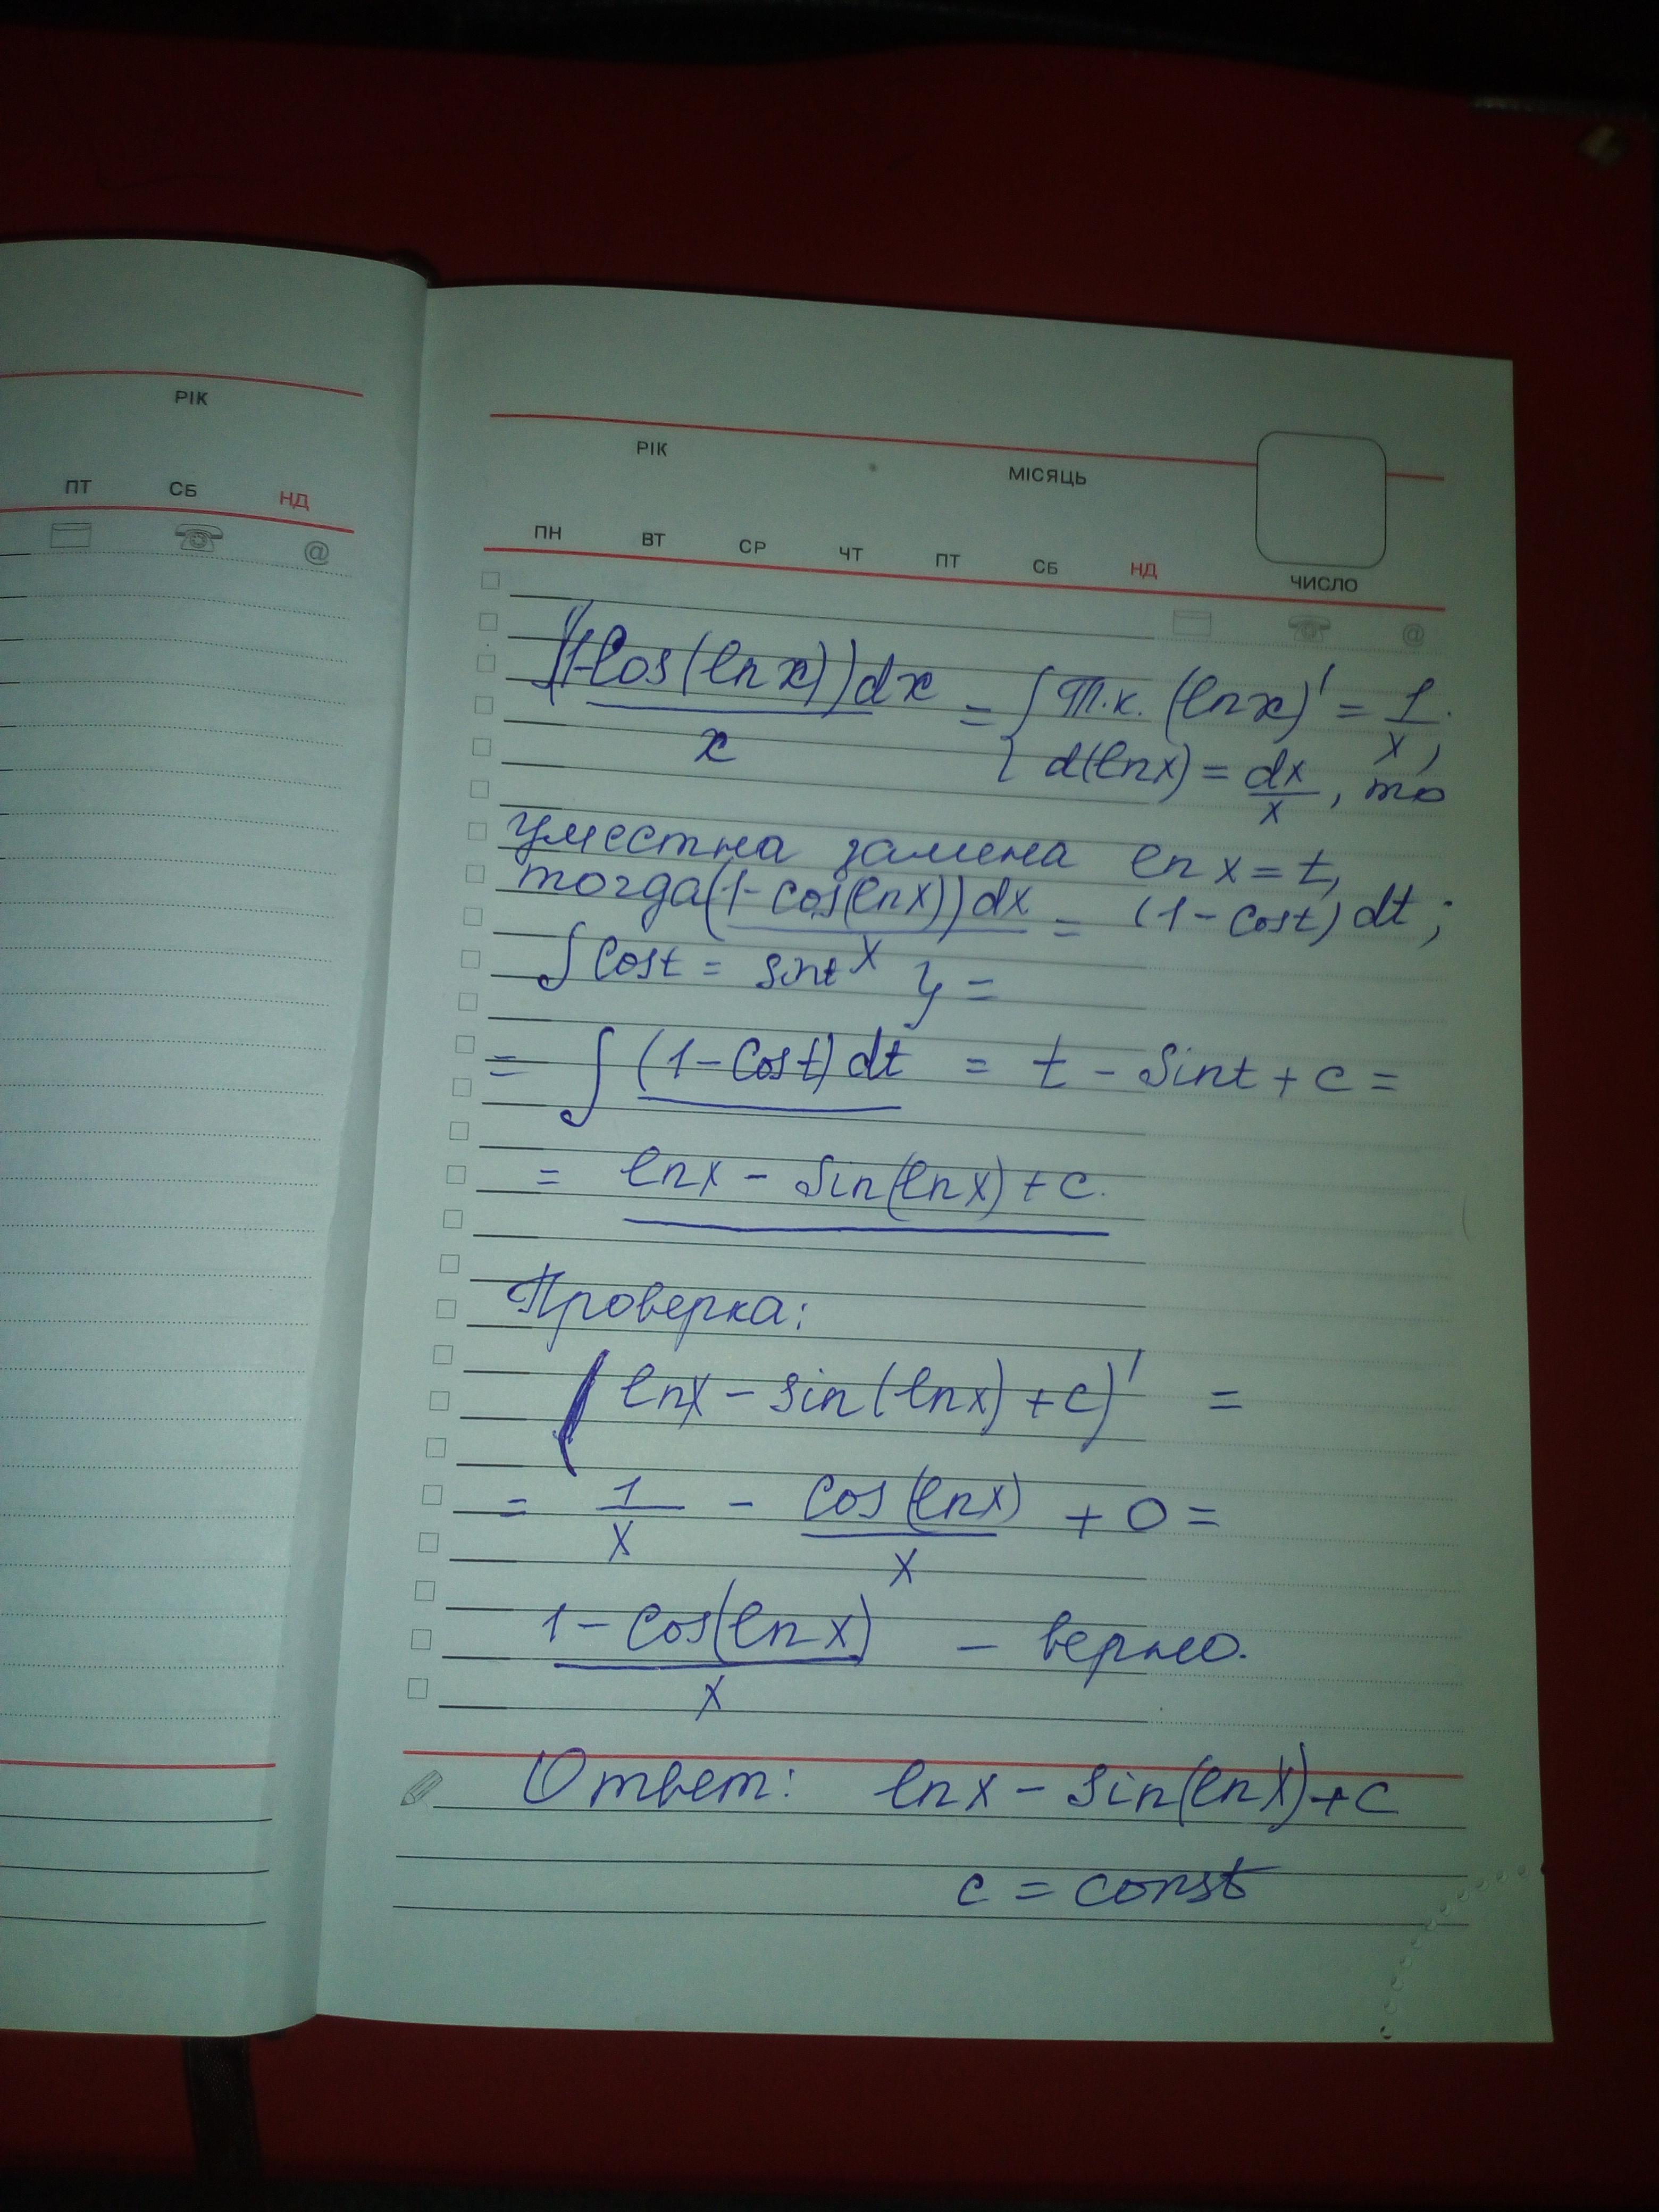 РІК
ПТ СБ НД
@
РІК МІСЯЦЬ
ПН ВТ СР ЧТ ПТ СБ НД ЧИСЛО
@
∫(1-cos(ln x))dx/x = { т.к. (ln x)' = 1/x,
d(ln x) = dx/x, то
уместна замена ln x = t,
тогда (1-cos(ln x))dx/x = (1-cost)dt;
∫cost = sint } =
= ∫(1-cost)dt = t - sint + c =
= ln x - sin(ln x) + c.
Проверка:
(ln x - sin(ln x) + c)' =
= 1/x - cos(ln x)/x + 0 =
1-cos(ln x)/x - верно.
Ответ: ln x - sin(ln x) + c
c = const